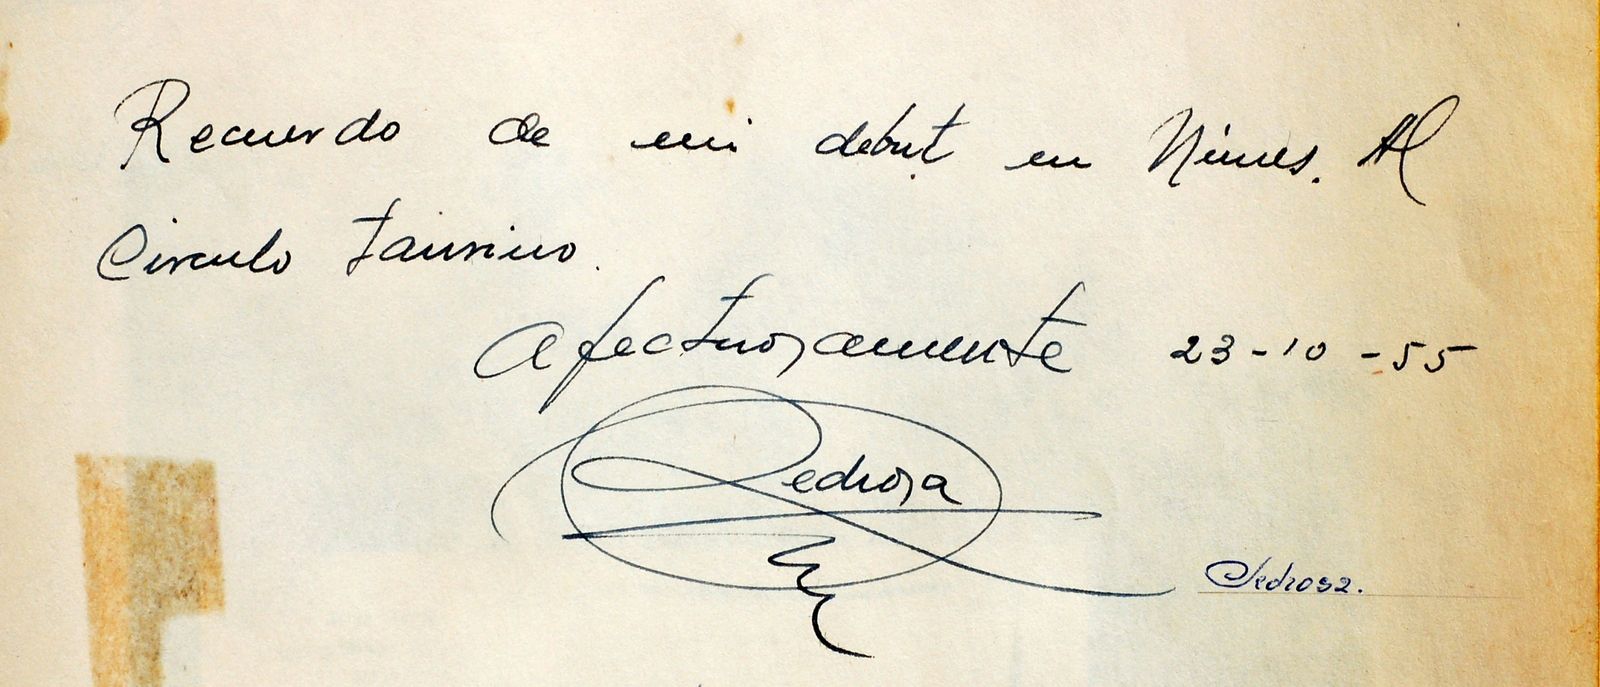 Recuerdo de mi debut en Nimes. Al
Circulo taurino.
Afectuosamente 23-10-55
Pedrosa
Pedrosa.